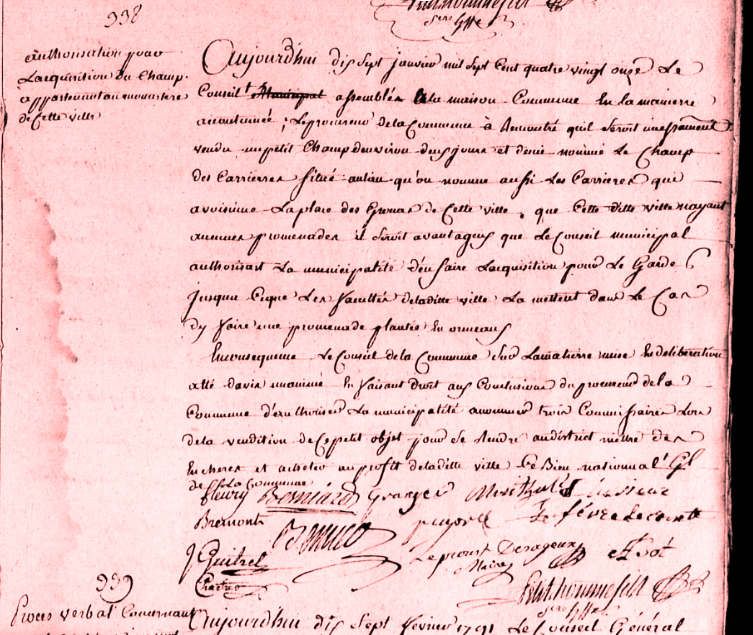 Petithommefils
secre gffer
938
authorisation pour
Lacquisition du Champ
appartenant au monastere
de Cette ville
Aujourdhui dix Sept janvier mil Sept Cent quatre vingt onze Le
Conseil Municipal assemblés a la maison Commune En la maniere
accoutumée, Le procureur de la Commune à Remontré quil Seroit incessament
vendu un petit Champ denviron deux jours et demie nommé Le Champ
des Carrieres Situé au lieu qu'on nomme aussi Les Carrieres qui
avoisine La place des de Cette ville, que Cette ditte ville nayant
aucunes promenades il Seroit avantageux que Le Conseil municipal
authorisat La municipalité d'en faire Lacquisition pour Le Garder
jusqua Ceque Les facultés de laditte ville La mettent dans Le Cas
dy faire une promenade plantée En ormeaux
En consequence Le Conseil de la Commune Sur La matiere mise En deliberation
a été davis unanime En faisant Droit aux Conclusions du procureur de la
Commune d'authoriser La municipalité a nommer trois Commissaires Lors
de la vendition de Ce petit objet pour Se Rendre au district meme des
Encheres et acheter au profit de laditte ville Ce Bien national
de La Commune
fleury Granger
Bremont Le fevre Lecomte
J Guitrel Leprout Desrageux
Maire
Petithommefils
secre gffer
939
Proces verbal Concernant
Aujourdhui dix Sept fevrier 1791 Le Conseil Général